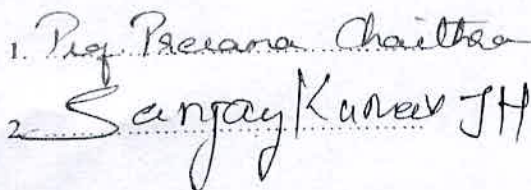 1. Prof. Prerana Chaithra
2. Sanjay Kumar JH